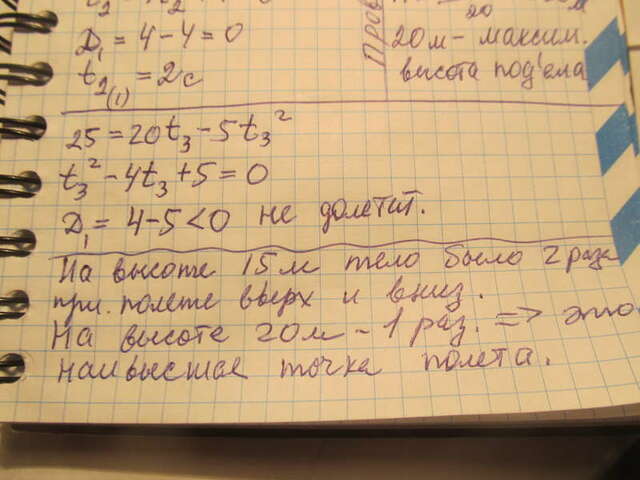 D₁ = 4 - 4 = 0
t₂₍₁₎ = 2с
20м - максим.
высота под'ема
25 = 20t₃ - 5t₃²
t₃² - 4t₃ + 5 = 0
D₁ = 4 - 5 < 0 не долетит.
На высоте 15 м тело было 2 раза
при полете вверх и вниз.
На высоте 20м - 1 раз. => это
наивысшая точка полета.